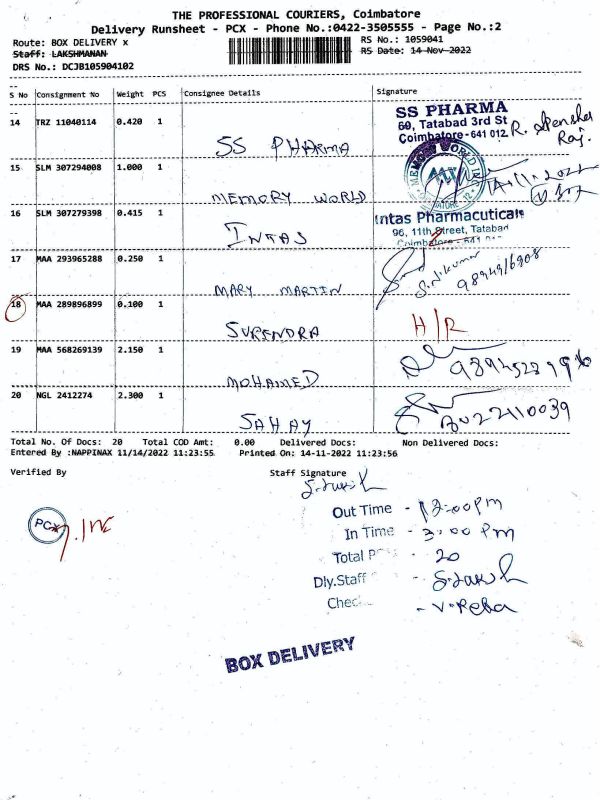 THE PROFESSIONAL COURIERS, Coimbatore
Delivery Runsheet - PCX - Phone No.:0422-3505555 - Page No.:2
Route: BOX DELIVERY x RS No.: 1059041
Staff: LAKSHMANAN RS Date: 14 Nov 2022
DRS No.: DCJB105904102
S No Consignment No Weight PCS Consignee Details Signature
14 TRZ 11040114 0.420 1 SS PHARMA
SS PHARMA
60, Tatabad 3rd St
Coimbatore-641 012
15 SLM 307294008 1.000 1 MEMORY WORLD
MEMORY WORLD
16 SLM 307279398 0.415 1 INTAS
Intas Pharmaceutical
96, 11th Street, Tatabad
17 MAA 293965288 0.250 1 MARY MARTIN
18 MAA 289896899 0.100 1 SURENDRA H/R
19 MAA 568269139 2.150 1 MOHAMED
20 NGL 2412274 2.300 1 SAHAY
Total No. Of Docs: 20 Total COD Amt: 0.00 Delivered Docs: Non Delivered Docs:
Entered By :NAPPINAX 11/14/2022 11:23:55 Printed On: 14-11-2022 11:23:56
Verified By Staff Signature
PCX
Out Time - 12:00pm
In Time - 3:00 pm
Total - 20
Dly.Staff
- V. Reba
BOX DELIVERY